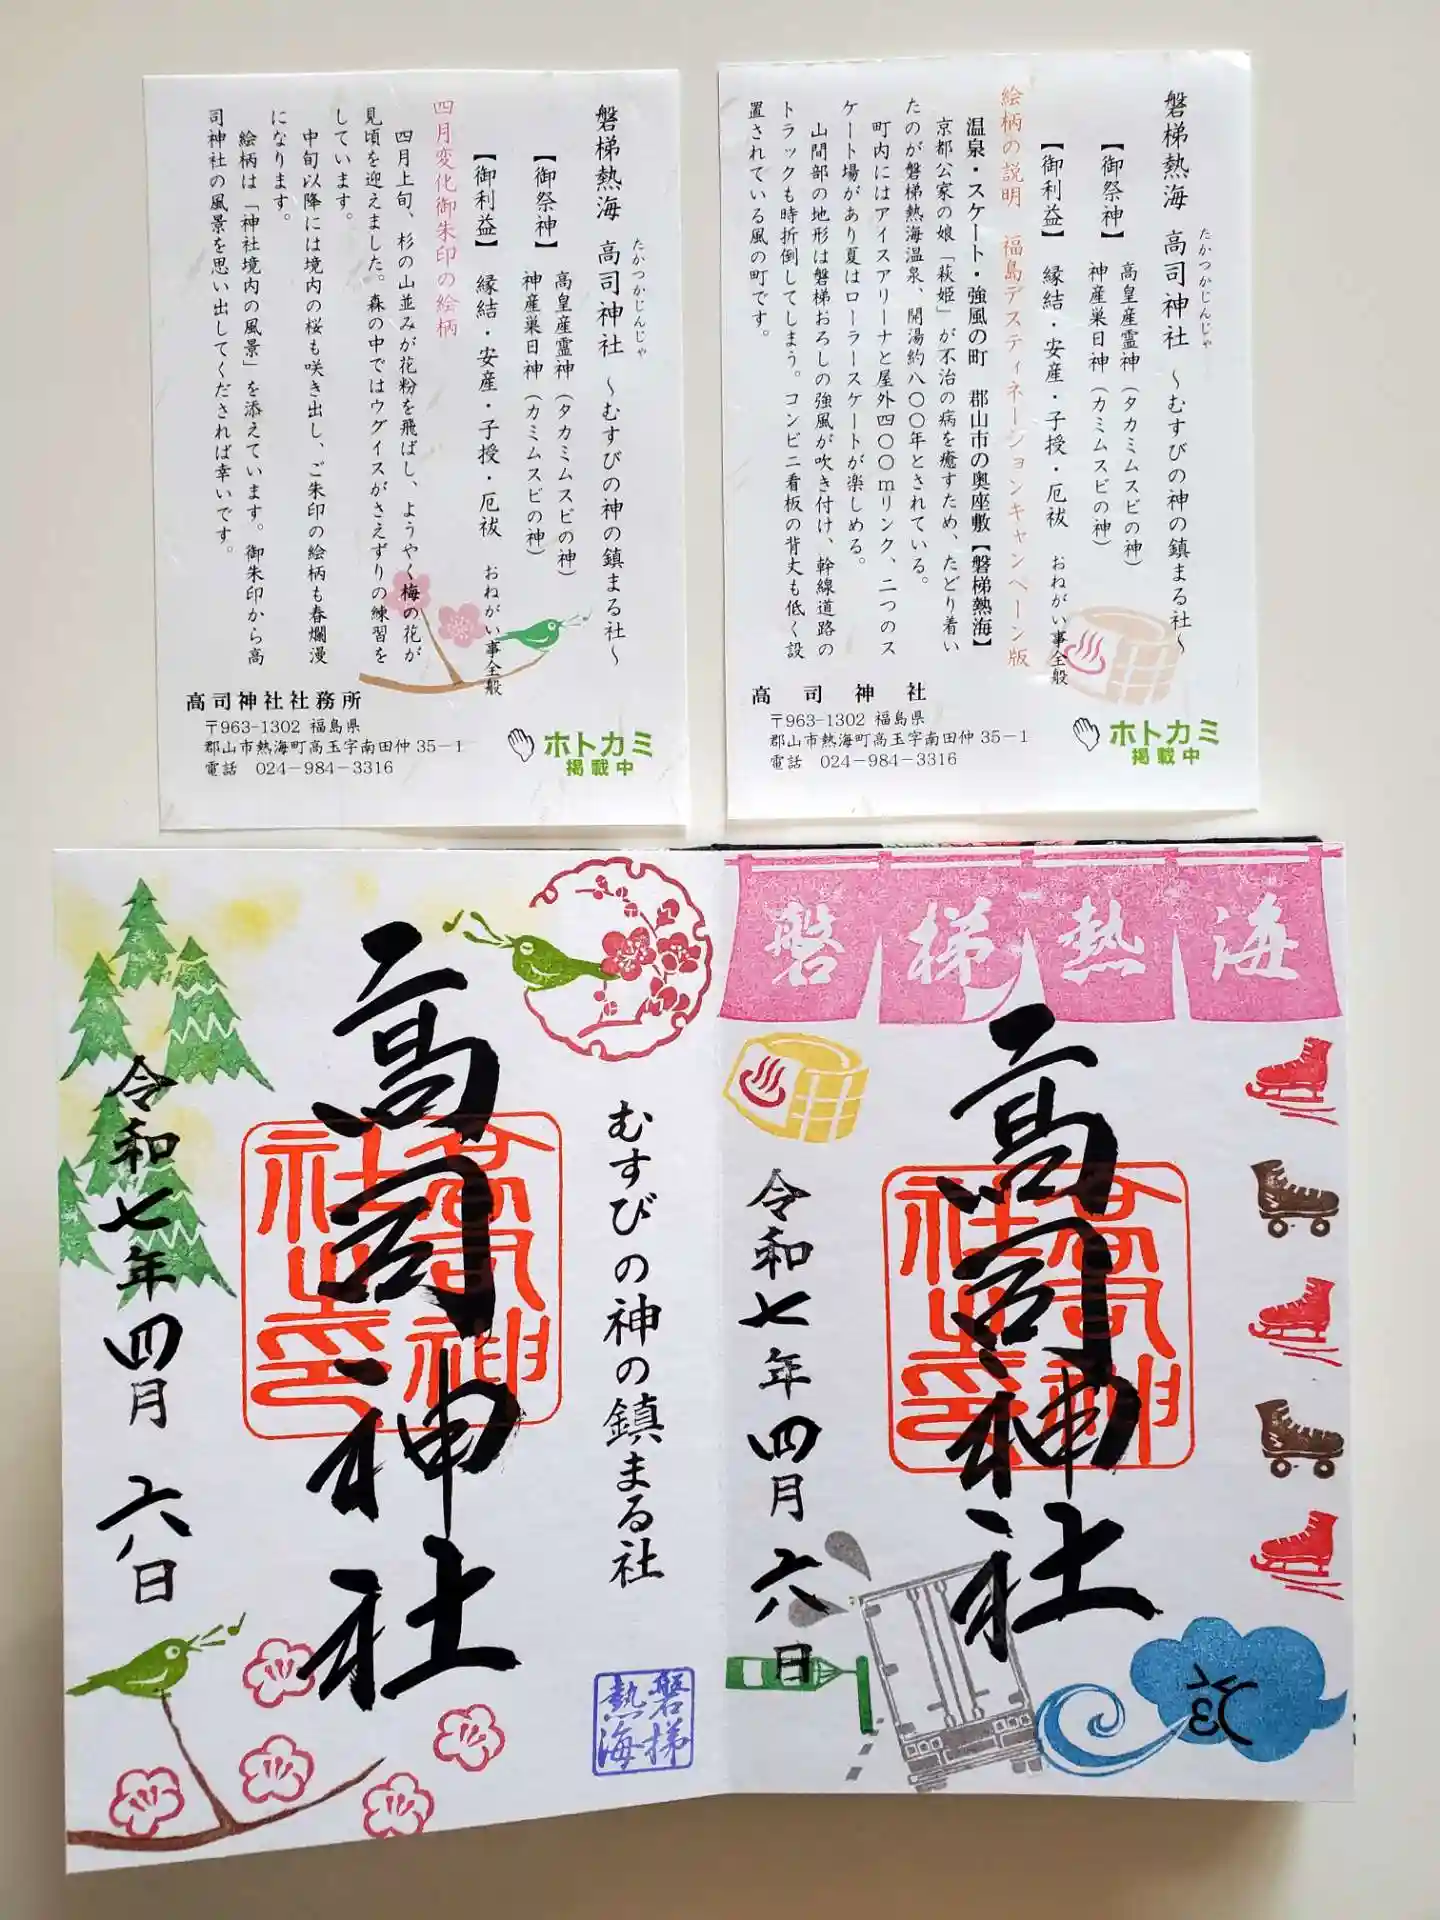 磐梯熱海 高司神社 ～むすびの神の鎮まる社～
たかつかじんじゃ
【御祭神】 高皇産霊神（タカミムスビの神）
神産巣日神（カミムスビの神）
【御利益】 縁結・安産・子授・厄祓 おねがい事全般
四月変化御朱印の絵柄
四月上旬、杉の山並みが花粉を飛ばし、ようやく梅の花が
見頃を迎えました。森の中ではウグイスがさえずりの練習を
しています。
中旬以降には境内の桜も咲き出し、ご朱印の絵柄も春爛漫
になります。
絵柄は「神社境内の風景」を添えています。御朱印から高
司神社の風景を思い出してくだされば幸いです。
高司神社社務所
〒963-1302 福島県
郡山市熱海町高玉字南田仲 35－1
電話 024－984－3316
ホトカミ
掲載中
磐梯熱海 高司神社 ～むすびの神の鎮まる社～
たかつかじんじゃ
【御祭神】 高皇産霊神（タカミムスビの神）
神産巣日神（カミムスビの神）
【御利益】 縁結・安産・子授・厄祓 おねがい事全般
絵柄の説明 福島デスティネーションキャンペーン版
温泉・スケート・強風の町 郡山市の奥座敷【磐梯熱海】
京都公家の娘「萩姫」が不治の病を癒すため、たどり着い
たのが磐梯熱海温泉、開湯約八〇〇年とされている。
町内にはアイスアリーナと屋外四〇〇ｍリンク、二つのス
ケート場があり夏はローラースケートが楽しめる。
山間部の地形は磐梯おろしの強風が吹き付け、幹線道路の
トラックも時折倒してしまう。コンビニ看板の背丈も低く設
置されている風の町です。
高司神社
〒963-1302 福島県
郡山市熱海町高玉字南田仲 35－1
電話 024－984－3316
ホトカミ
掲載中
磐梯熱海
高司神社
高司神社之印
令和七年四月六日
むすびの神の鎮まる社
高司神社
高司神社之印
令和七年四月六日
磐梯
熱海